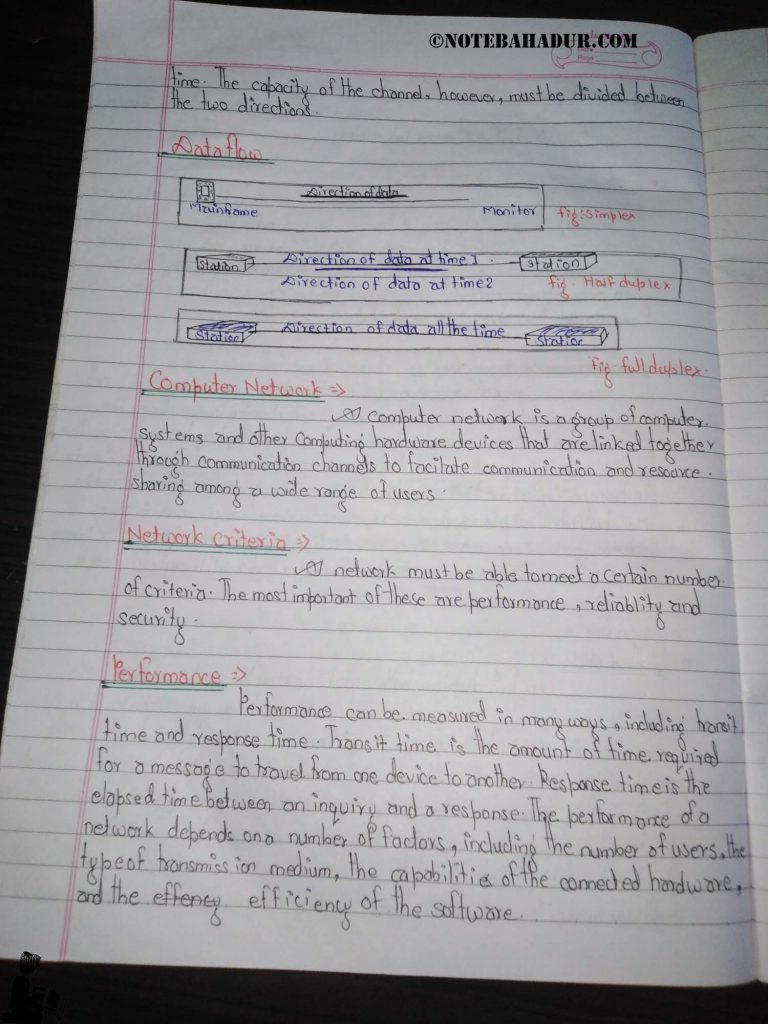 ©NOTEBAHADUR.COM
time. The capacity of the channel, however, must be divided between
the two directions.
Dataflow
Direction of data
Mainframe Monitor fig:-simplex
Station Direction of data at time 1 Station
Direction of data at time 2 fig. Half duplex
Station Direction of data all the time Station
fig. full duplex.
Computer Network =>
A computer network is a group of computer
systems and other computing hardware devices that are linked together
through communication channels to facilate communication and resource
sharing among a wide range of users.
Network criteria =>
A network must be able to meet a certain number
of criteria. The most important of these are performance, reliablity and
security.
Performance =>
Performance can be measured in many ways, including transit
time and response time. Transit time is the amount of time required
for a message to travel from one device to another. Response time is the
elapsed time between an inquiry and a response. The performance of a
network depends on a number of factors, including the number of users, the
type of transmission medium, the capabilities of the connected hardware,
and the effency efficiency of the software.